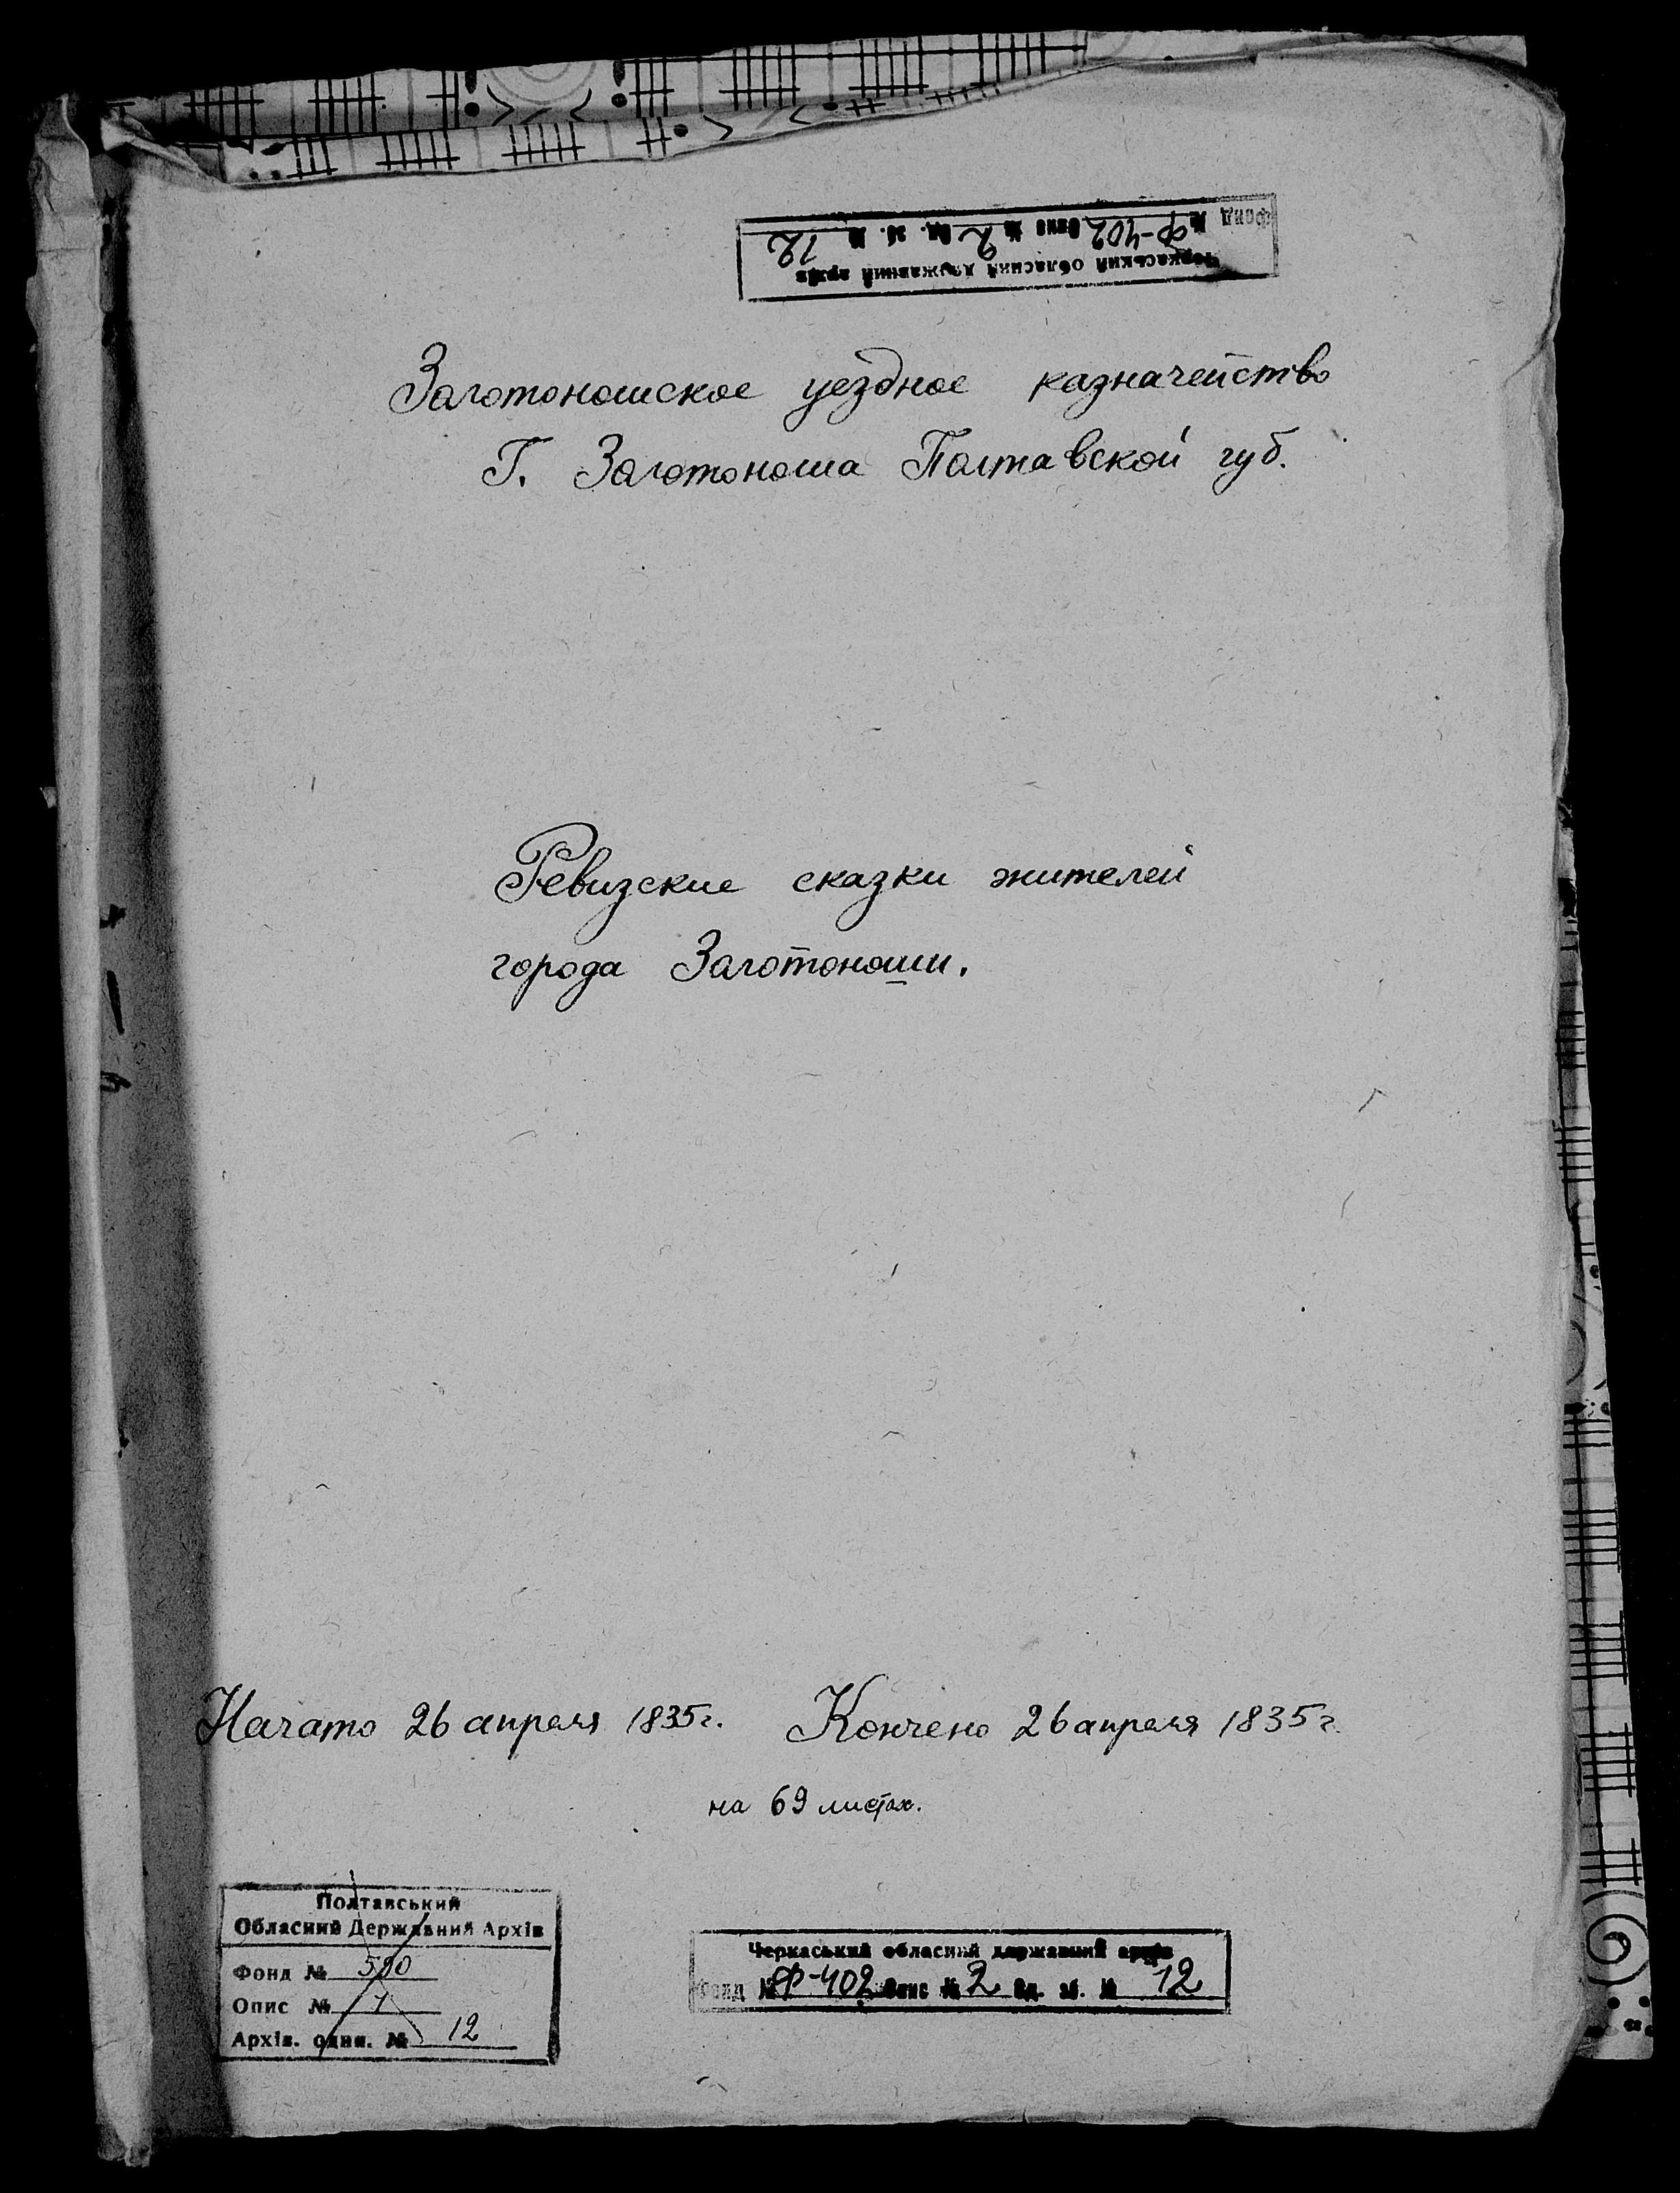 Черкаський обласний державний архів
Фонд № Ф-402 Опис № 2 Од. зб. № 12
Золотоношское уездное казначейство
Г. Золотоноша Полтавской губ.
Ревизские сказки жителей
города Золотоноши.
Начато 26 апреля 1835г. Кончено 26 апреля 1835г.
на 69 листах.
Полтавський
Обласний Державний Архів
Фонд № 590
Опис № 1
Архів. один. № 12
Черкаський обласний державний архів
Фонд № Ф-402 Опис № 2 Од. зб. № 12